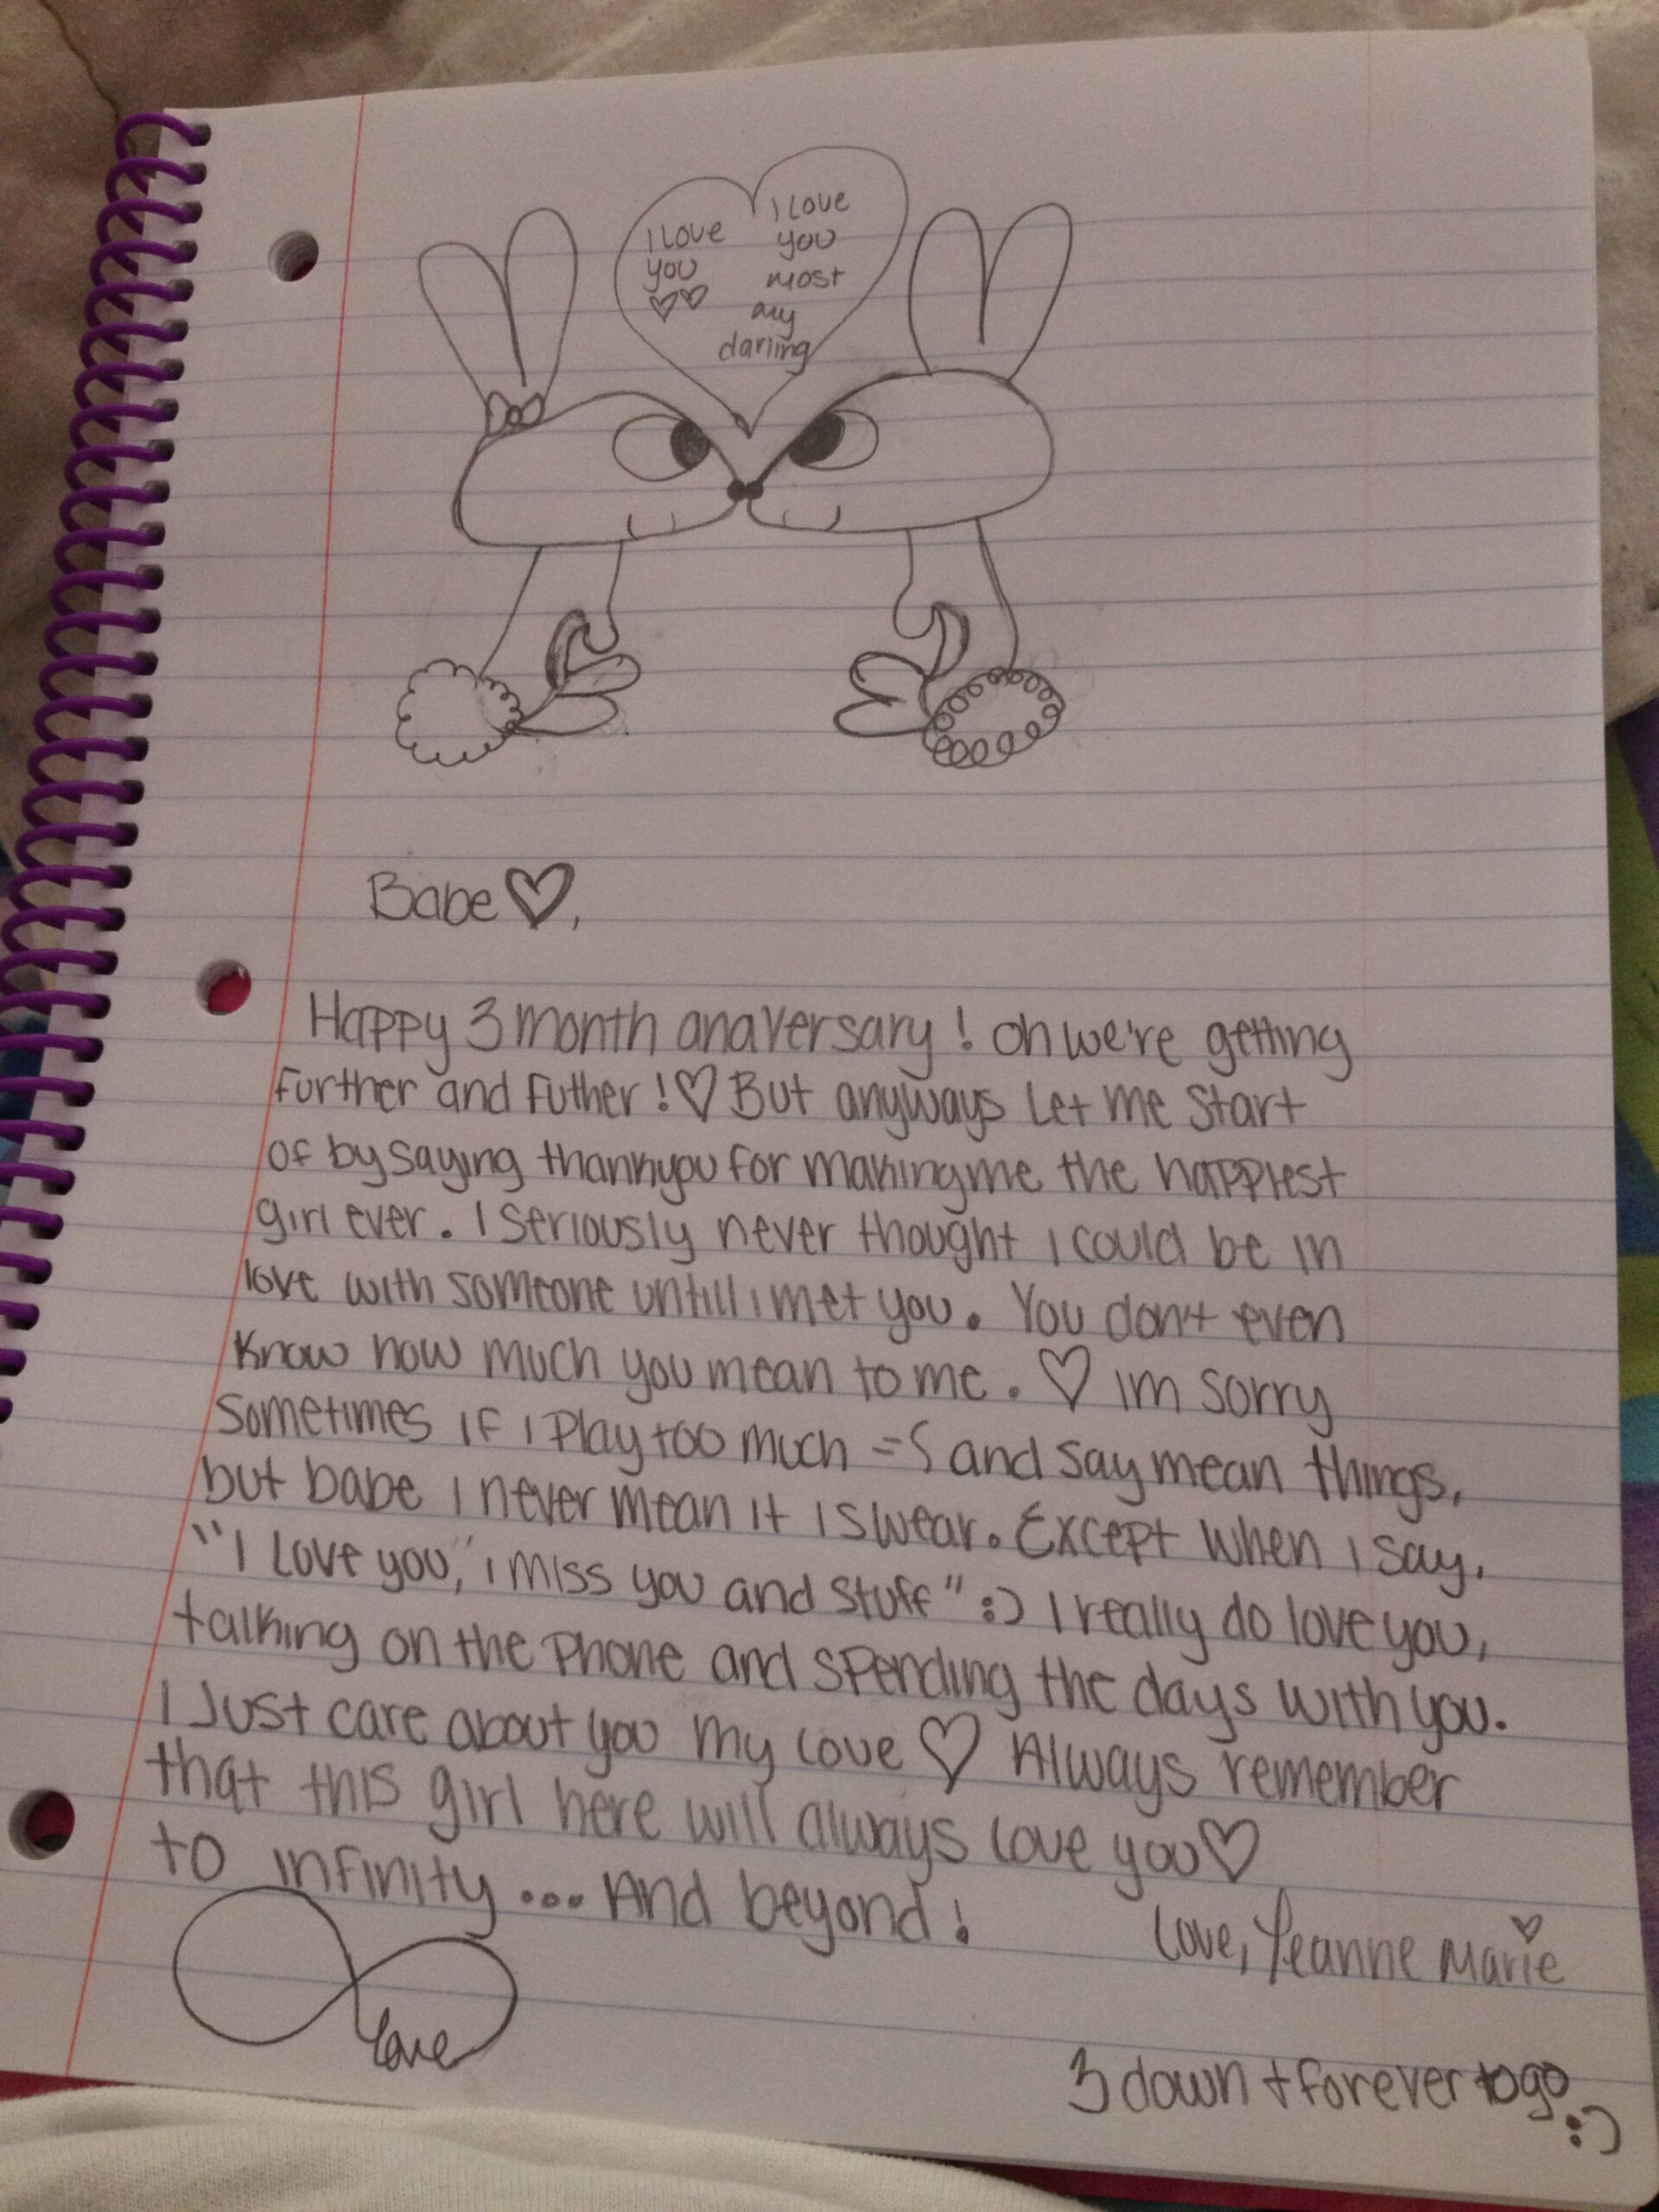 I Love
you
♡♡
I Love
you
most
my
darling
Babe ♡,
Happy 3 month anaversary! Oh we're getting
further and futher! ♡ But anyways let me start
of by saying thankyou for making me the happiest
girl ever. I seriously never thought I could be in
love with someone untill i met you. You don't even
know how much you mean to me. ♡ im sorry
sometimes if i play too much =( and say mean things,
but babe i never mean it i swear. Except when i say,
"I love you," i miss you and stuff" :) I really do love you,
talking on the phone and spending the days with you.
I Just care about you my love ♡ Always remember
that this girl here will always love you ♡
to infinity ... And beyond!
Love, Yeanne Marie
love
3 down + forever to go
:)